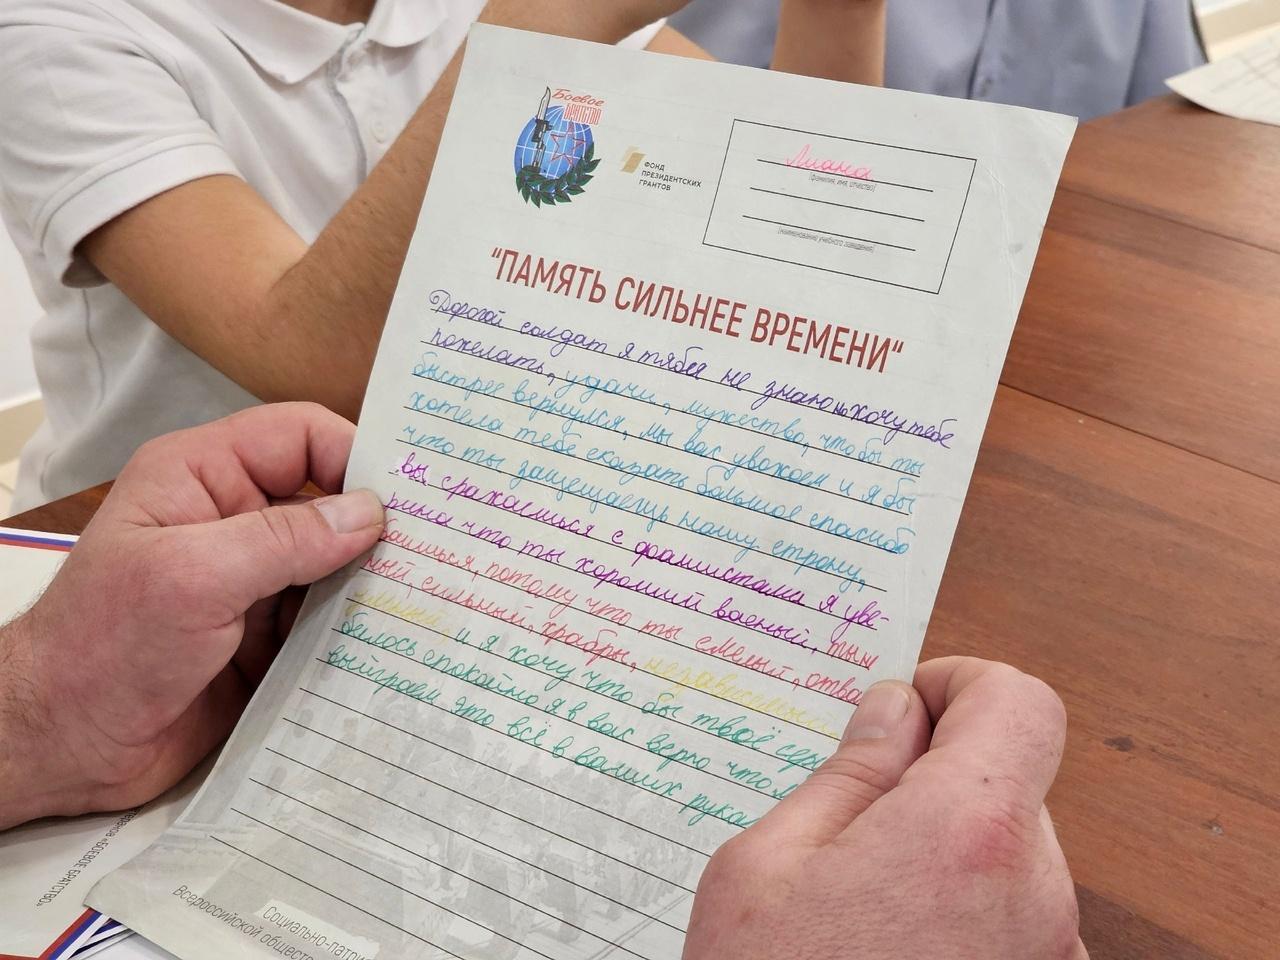 Боевое
БРАТСТВО
ФОНД
ПРЕЗИДЕНТСКИХ
ГРАНТОВ
Лиана
(фамилия, имя, отчество)
(наименование учебного заведения)
“ПАМЯТЬ СИЛЬНЕЕ ВРЕМЕНИ“
Дорогой солдат я тябея не знаю но хочу тебе
пожелать, удачи, мужества, чтобы ты
быстрее вернулся, мы вас уважаем и я бы
хотела тебе сказать большое спасибо
что ты защищаешь нашу строну,
вы сражаешься с фашистами я уве-
рина что ты хороший ваеный, ты н
баишься, потому что ты смелый, отва
ный, сильный, храбры, незавесимый
умный, и я хочу что бы твоё сер
билось спокойно я в вас верю что м
выйграем это всё в ваших рука
Социально-патри
Всероссийской обществ
теранов «БОЕВОЕ БРАТСТВО»